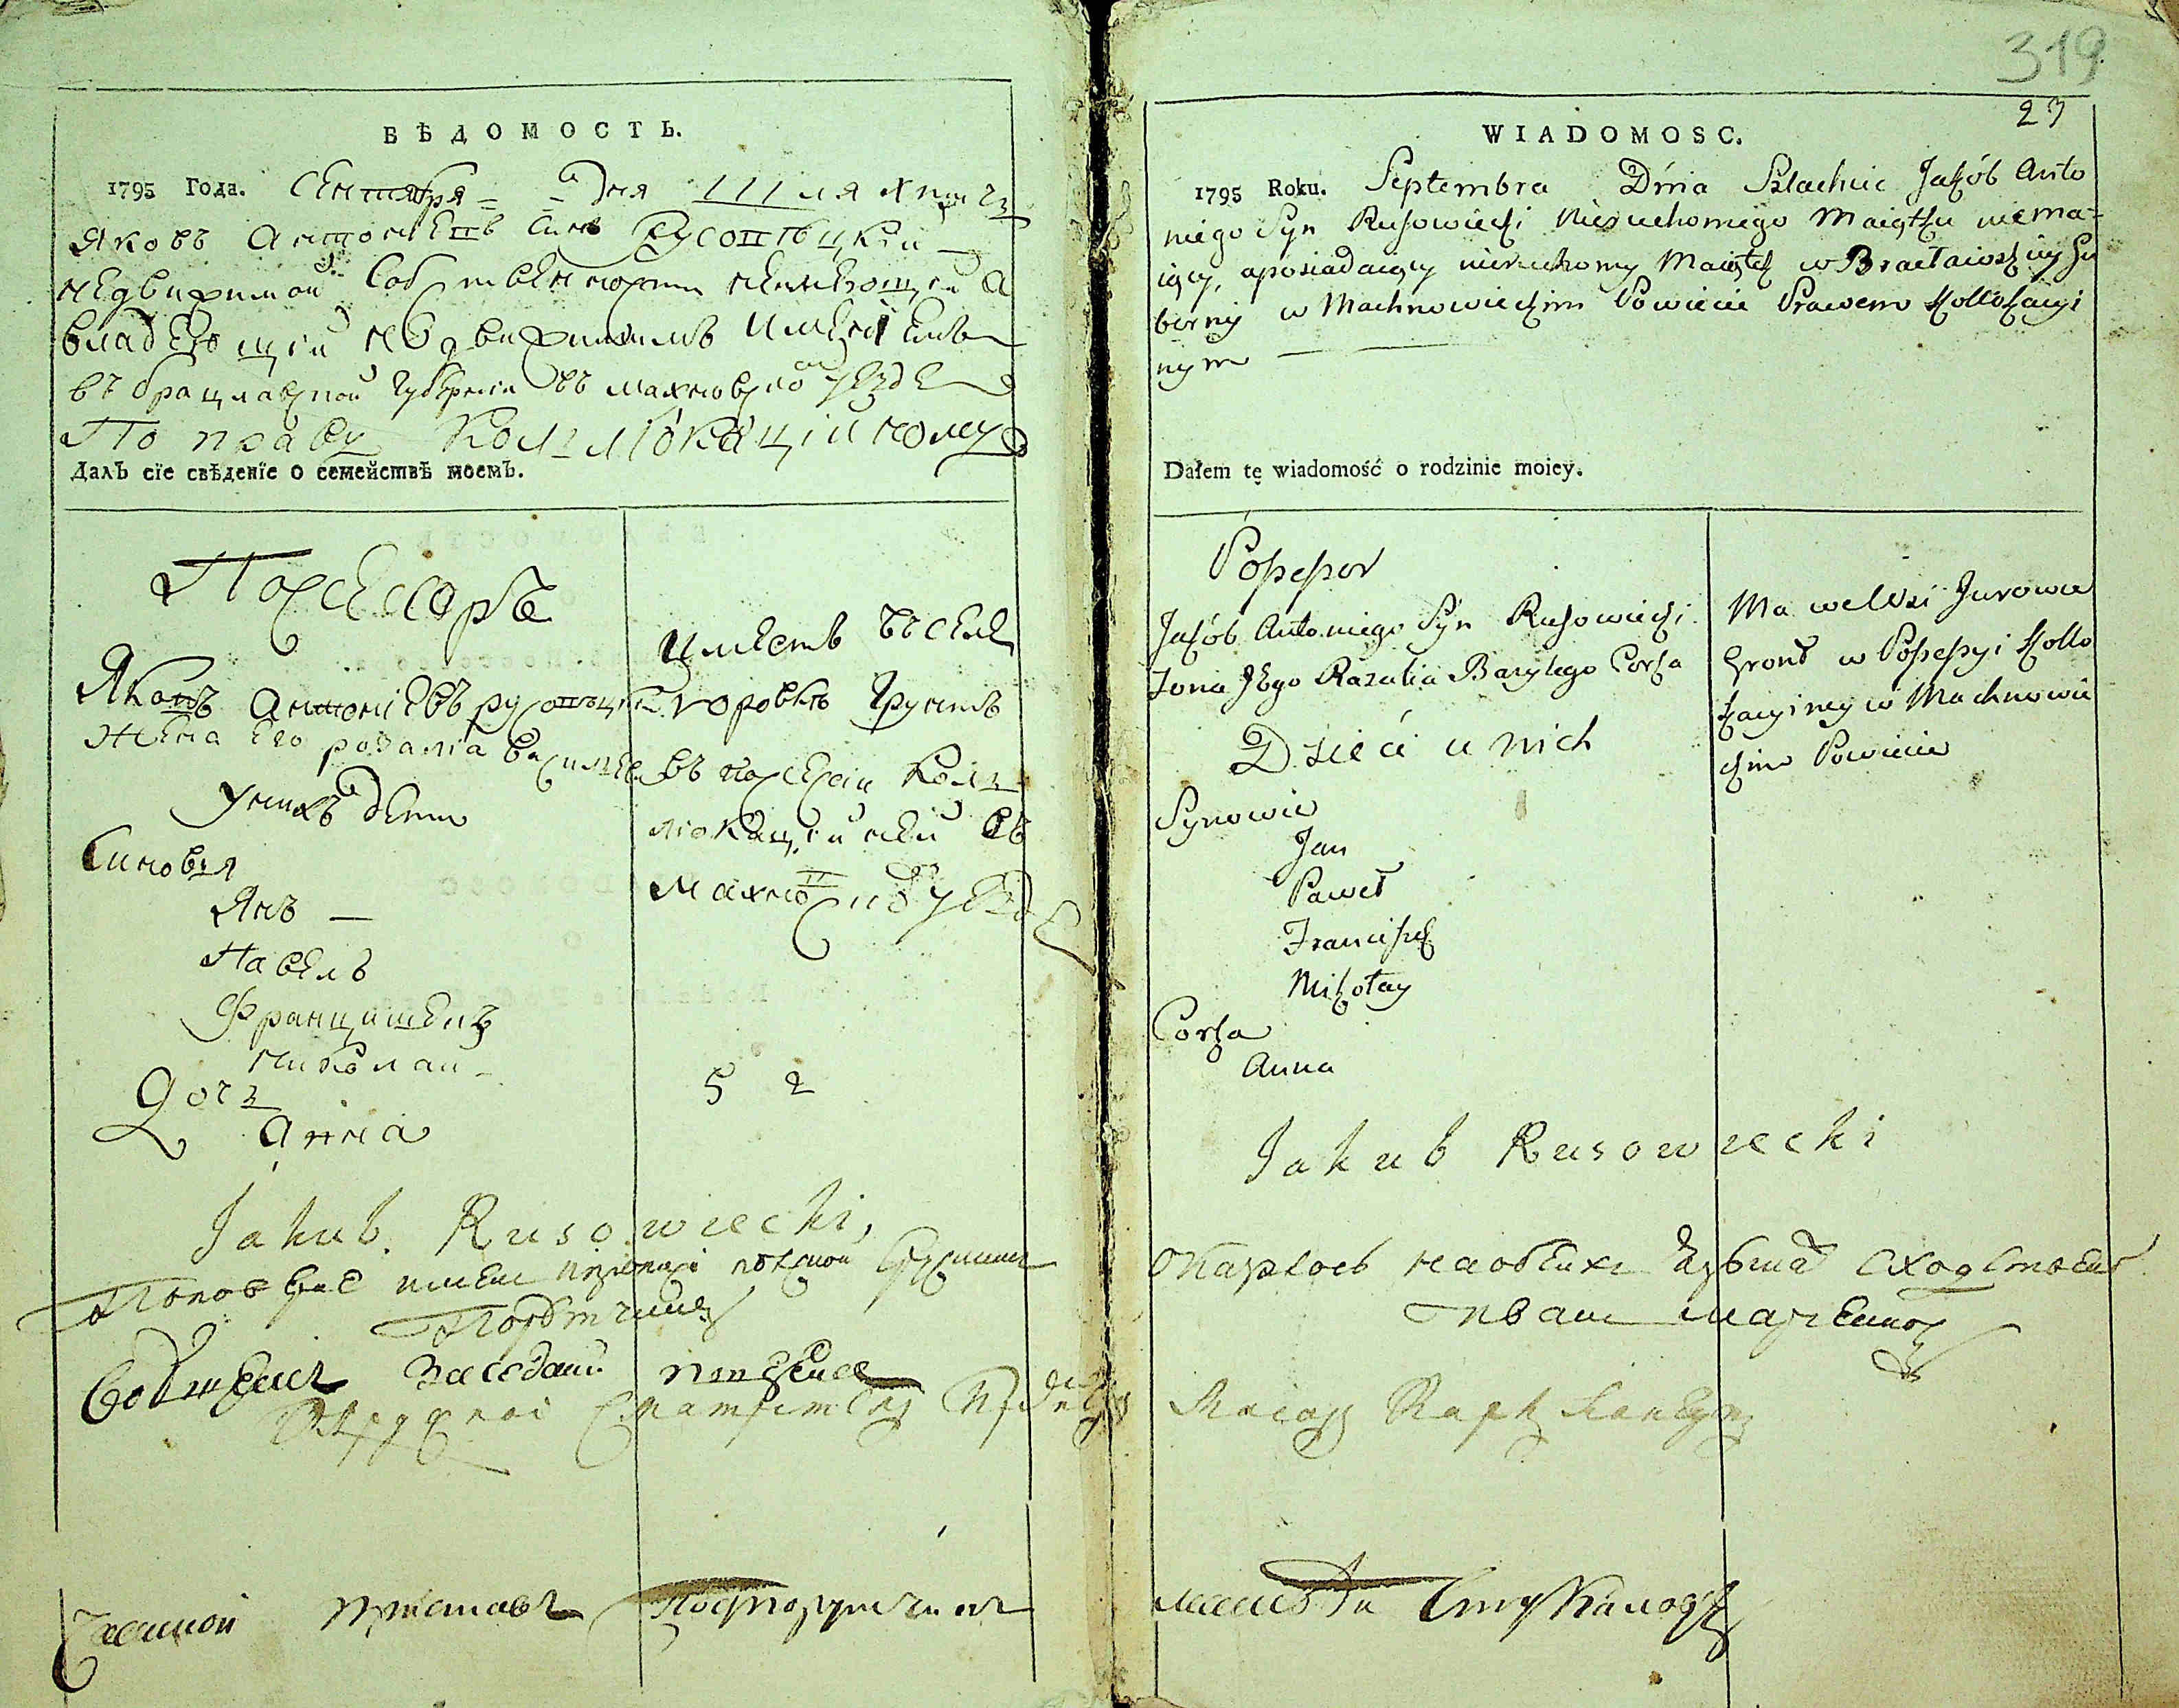 ВѢДОМОСТЬ.
1795 Года. Сентября Дня шляхтичъ
Яковъ Антоніевъ синъ Русовѣцкій
недвижимой собственности неимеющій а
владеющій недвижимимъ имениемъ
въ брацлавской Губерніи въ махновском уезде
По праву Коллокаційному
Далъ сїе свѣденїе о семействѣ моемъ.
Посесоръ
Яковъ Антоніевъ русовѣцкій
Жена Его розалія василіева
У нихъ дети
Синовья
Янъ
Павелъ
Францишекъ
Николай
Дочь
Анна
Имеетъ въ селе
юровке Грунтъ
въ посесіи Кол-
локаційней въ
махнов уезде
5 2
Jakub Rusowiecki,
319
23
WIADOMOSC.
1795 Roku. Septembra Dnia Szlachcic Jakób Anto
niego Syn Rusowiecki Nieruchomego Maiątku niema-
iący, aposiadaiący nieruchomy Maiątek w Bracławskiey Gu
berny w Machnowieckim Powiecie Prawem Kollokacyi
nym
Dałem tę wiadomość o rodzinie moiey.
Possessor
Jakób Antoniego Syn Rusowiecki
Zona Jego Rozalia Bazylego Corka
Dzieci u nich
Synowie
Jan
Paweł
Franciszek
Mikołay
Corka
Anna
Ma we Wsi Jurowce
Gront w Possessyi Kollo
kacyiney w Machnowie
ckim Powiecie
Jakub Rusowiecki
Частной приставъ Подпорутчикъ